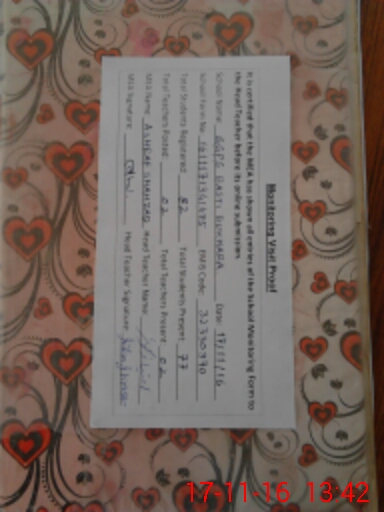 Monitoring Visit Proof
It is certified that the MEA has shown all entries of the School Monitoring Form to
the Head Teacher before its online submission.
School Name: GGPS BASTI Date: 17/11/16
School Form No: EMIS Code: 32330970
Total Students Registered: 82 Total Students Present: 77
Total Teachers Posted: 02 Total Teachers Present: 02
MEA Name: ASHRAF SHAHZAD Head Teacher Name:
MEA Signature: Head Teacher Signature:
17-11-16 13:42